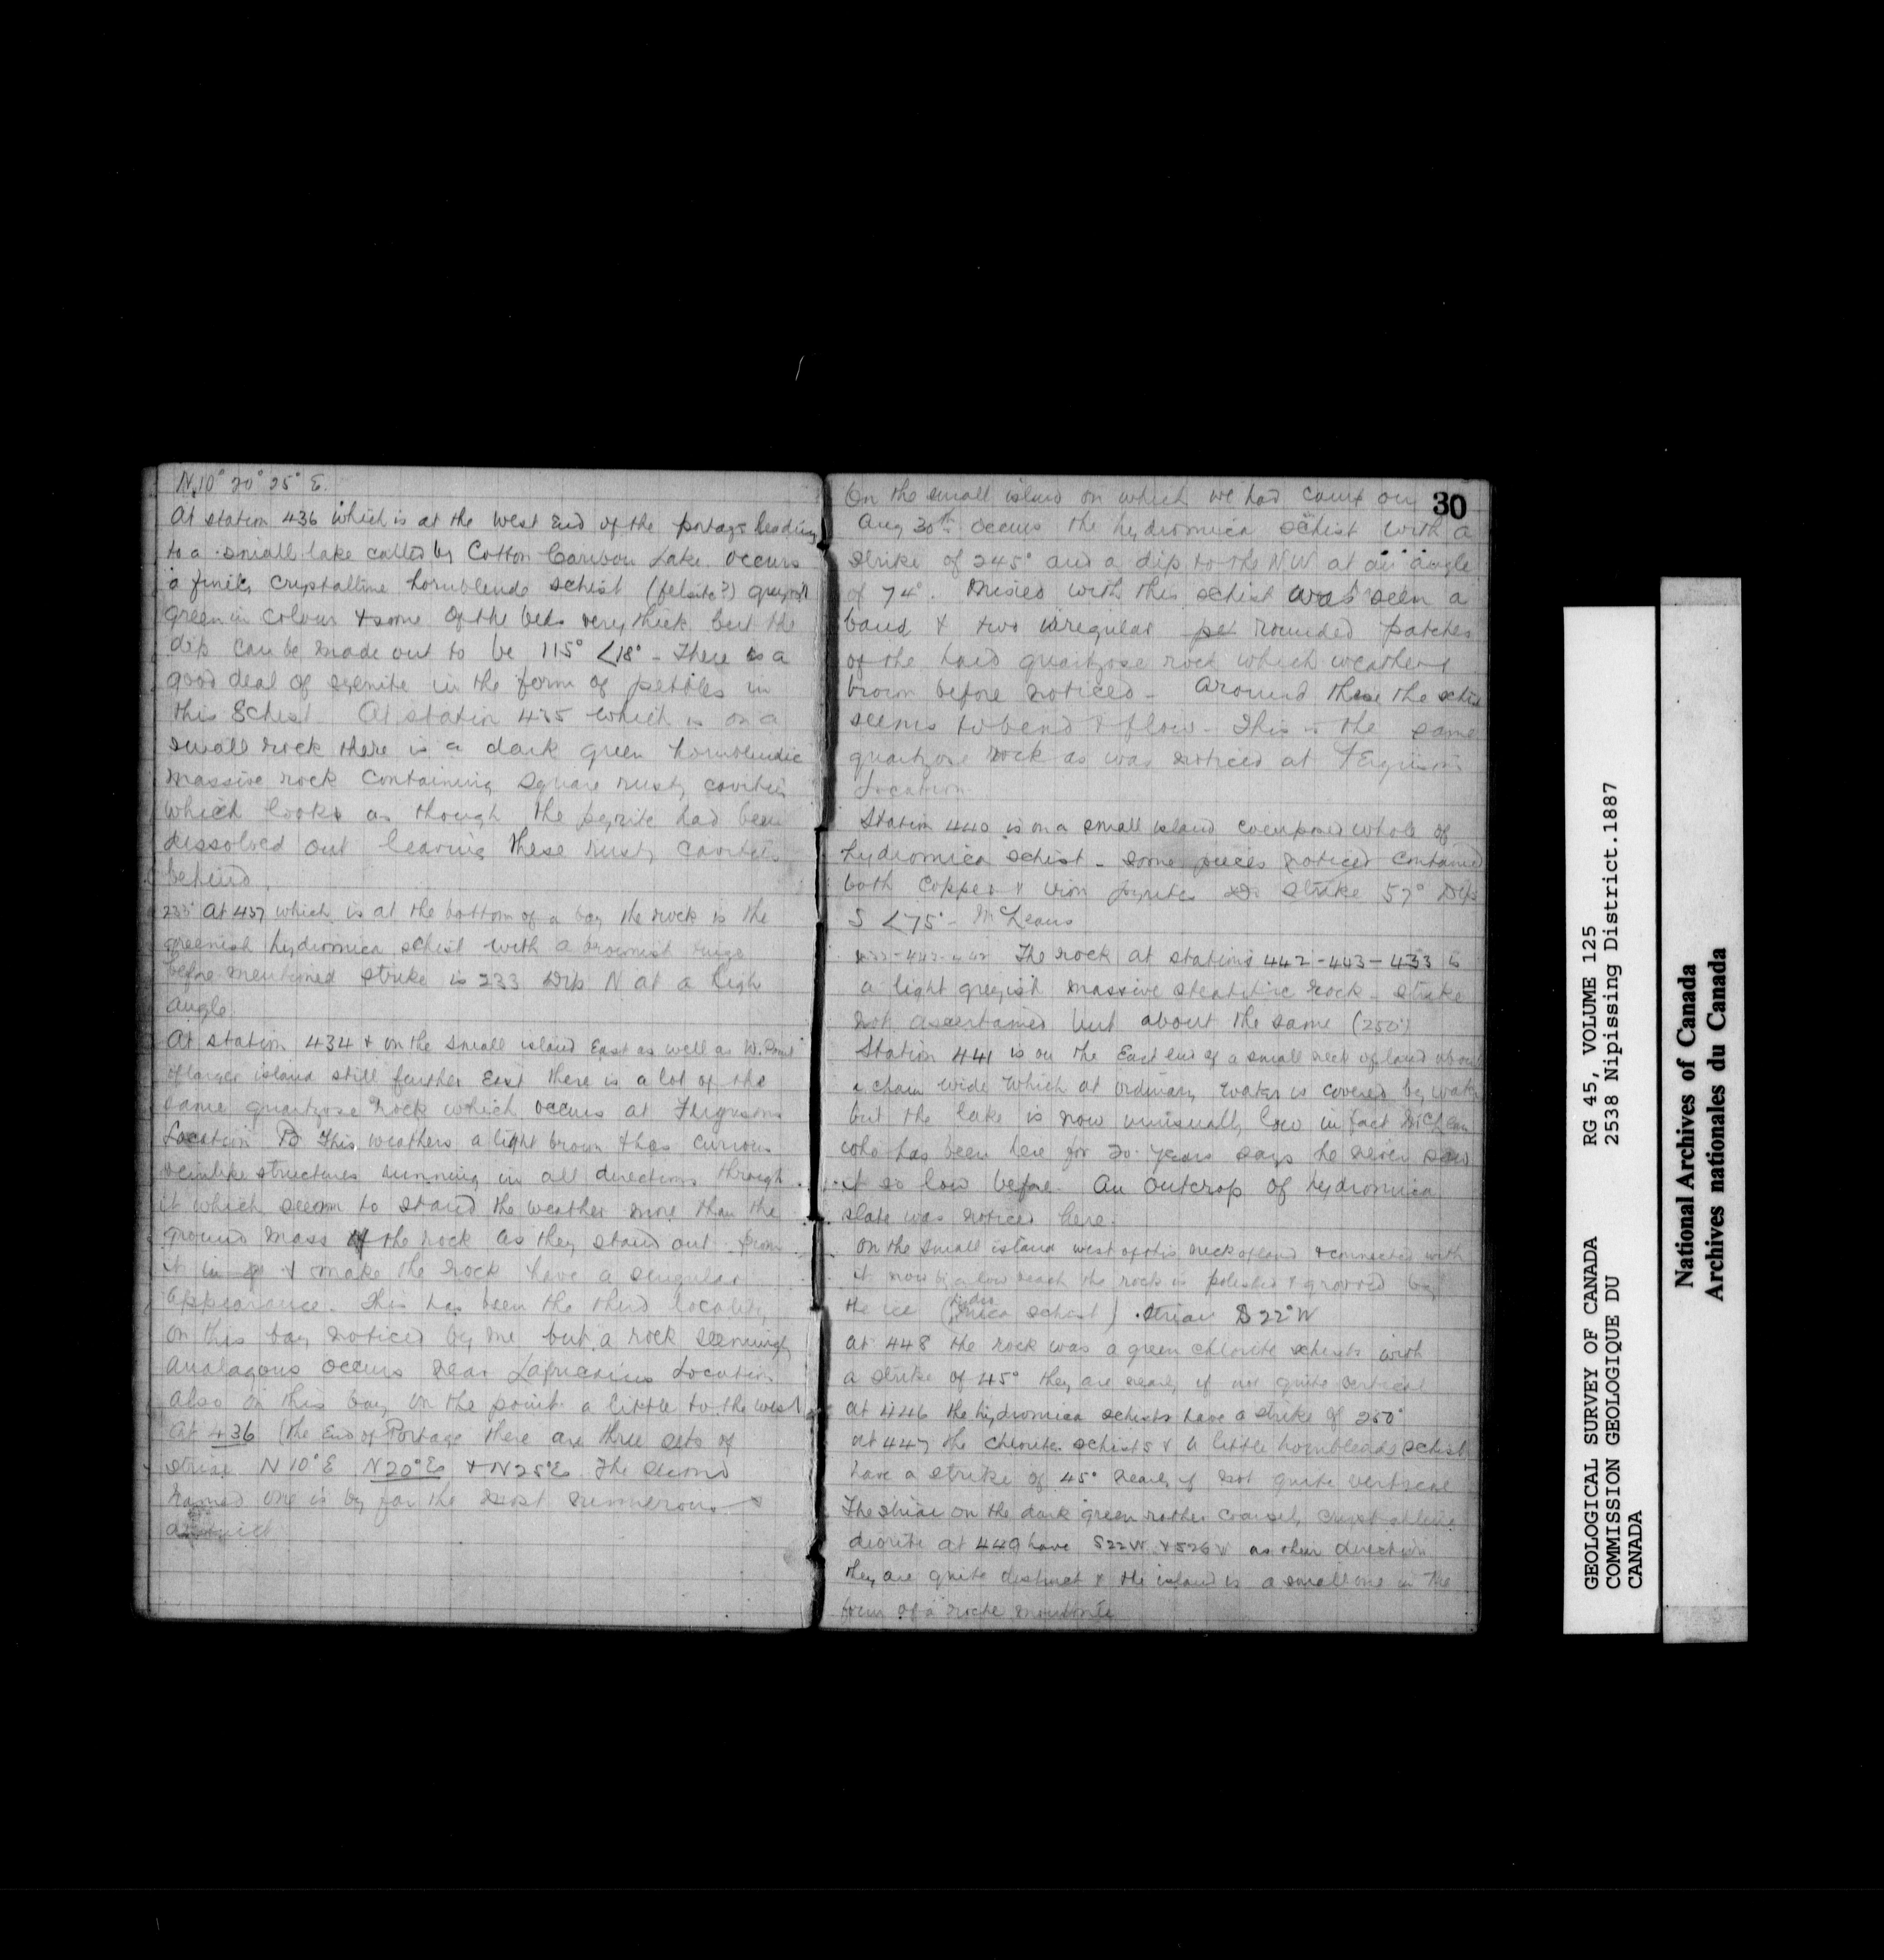 N 10° 20° 25° E.
At station 436 which is at the West End of the portage leading
to a small lake called by Cotton Caribou Lake occurs
a finely crystalline hornblende schist (felsite?) greyish
green in colour & some of the beds very thick but the
dip can be made out to be 115° <18° - There is a
good deal of syenite in the form of pebbles in
this Schist. At station 435 which is on a
small rock there is a dark green hornblendic
massive rock containing square rusty cavities
which looks as though the pyrite had been
dissolved out leaving these rusty cavities
behind.
233° At 437 which is at the bottom of a bay the rock is the
greenish hydromica schist with a brownish tinge
before mentioned strike is 233 Dip N at a high
angle
At station 434 & on the small island East as well as W. Point
of larger island still further East there is a lot of the
same quartzose rock which occurs at Fergusons
Location This weathers a light brown & has curious
veinlike structures running in all directions through
it which seem to stand the weather more than the
ground mass of the rock as they stand out from
it & make the rock have a singular
appearance. This has been the third locality
on this bay noticed by me but a rock seemingly
analagous occurs near Location
also on this bay on the point a little to the west
At 436 (the End of Portage there are three sets of
striae N 10° E N 20° E & N 25° E The second
named one is by far the most numerous &
distinct
30
On the small island on which we had camp on
Aug 30th occurs the hydromica schist with a
strike of 245° and a dip to the NW at an angle
of 74°. Mixed with this schist was seen a
band & two irregular rounded patches
of the hard quartzose rock which weathers
brown before noticed - Around these the schist
seems to bend & flow - This is the same
quartzose rock as was noticed at Ferguson's
Location
Station 440 is on a small island composed whole of
hydromica schist - some pieces noticed contained
both copper & iron pyrites strike 57° Dip
S <75° - McLeans
The rock at stations 442-443-433 is
a light greyish massive steatitic rock - strike
not ascertained but about the same (250°)
Station 441 is on the East end of a small neck of land about
a chain wide which at ordinary water is covered by water
but the lake is now unusually low in fact McLean
who has been here for 30 years says he never saw
it so low before. An outcrop of hydromica
slate was noticed here.
On the small island west of this neck of land & connected with
it now by a low reach the rock is polished & grooved by
the ice (hydromica schist) striae S 22° W
At 448 the rock was a green chlorite schists with
a strike of 45° they are nearly if not quite vertical
At 446 the hydromica schists have a strike of 250°
At 447 the chlorite schists & a little hornblende schist
have a strike of 45° nearly if not quite vertical
The striae on the dark green rather coarsely
diorite at 449 have S22W & S26W as their direction
they are quite distinct & the island is a small one in the
form of a roche moutonée
GEOLOGICAL SURVEY OF CANADA RG 45, VOLUME 125
COMMISSION GEOLOGIQUE DU 2538 Nipissing District.1887
CANADA
National Archives of Canada
Archives nationales du Canada